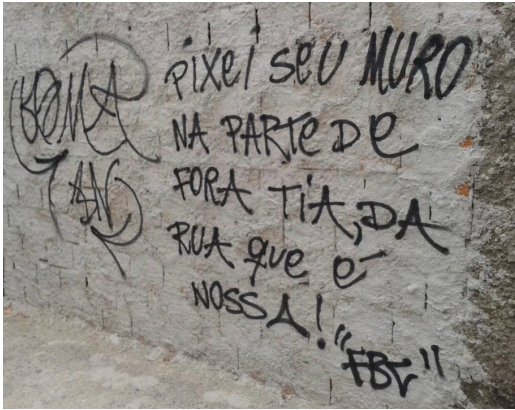 PIXEI SEU MURO
NA PARTE DE
FORA TIA, DA
RUA QUE É
NOSSA!
"FBT"